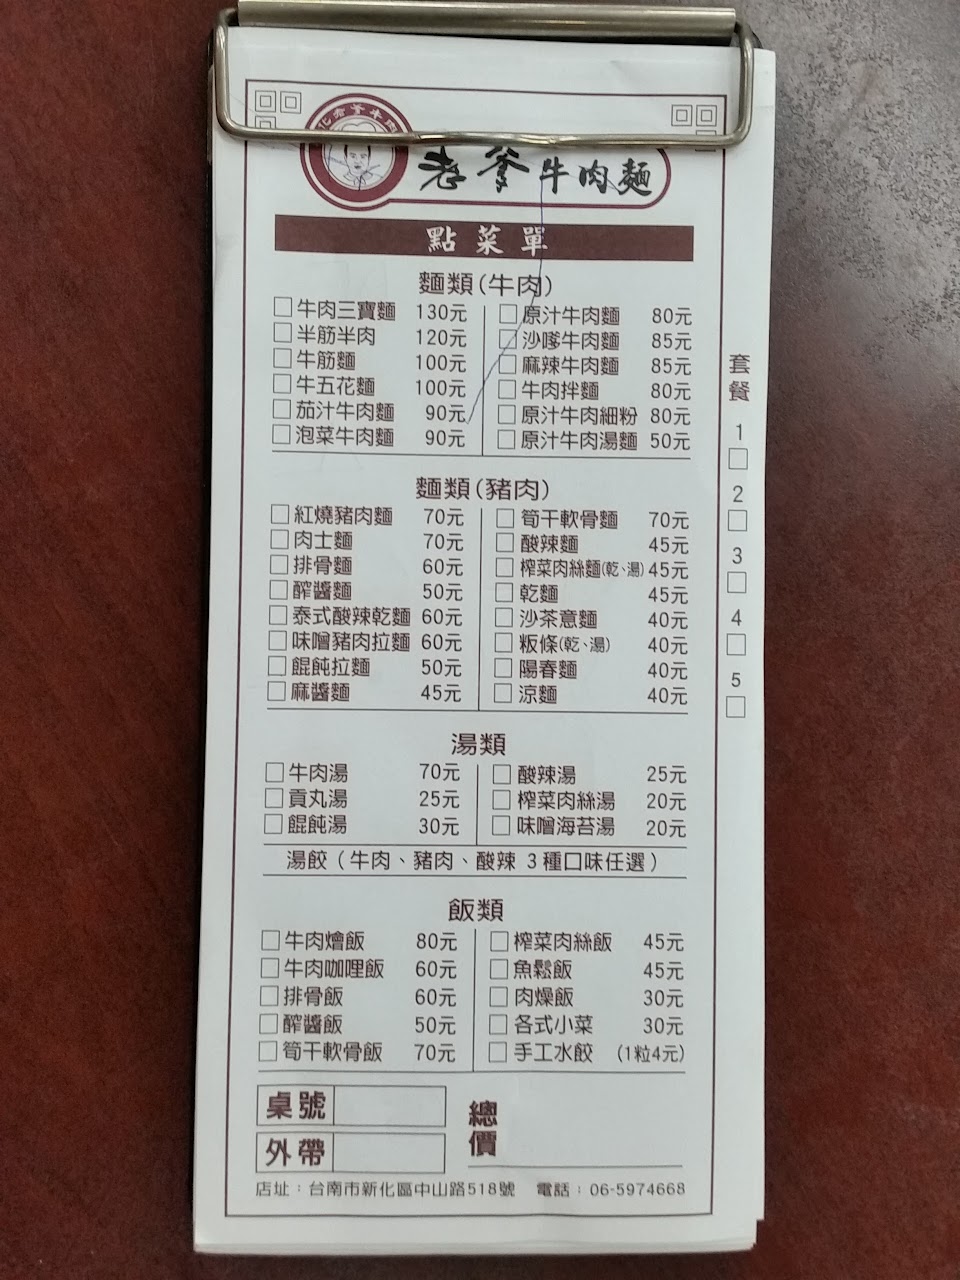 化老爹牛肉
老爹牛肉麵
點菜單
麵類(牛肉)
□牛肉三寶麵 130元
□半筋半肉 120元
□牛筋麵 100元
□牛五花麵 100元
□茄汁牛肉麵 90元
□泡菜牛肉麵 90元
□原汁牛肉麵 80元
□沙嗲牛肉麵 85元
□麻辣牛肉麵 85元
□牛肉拌麵 80元
□原汁牛肉細粉 80元
□原汁牛肉湯麵 50元
麵類(豬肉)
□紅燒豬肉麵 70元
□肉士麵 70元
□排骨麵 60元
□醡醬麵 50元
□泰式酸辣乾麵 60元
□味噌豬肉拉麵 60元
□餛飩拉麵 50元
□麻醬麵 45元
□筍干軟骨麵 70元
□酸辣麵 45元
□榨菜肉絲麵(乾、湯) 45元
□乾麵 45元
□沙茶意麵 40元
□粄條(乾、湯) 40元
□陽春麵 40元
□涼麵 40元
湯類
□牛肉湯 70元
□貢丸湯 25元
□餛飩湯 30元
□酸辣湯 25元
□榨菜肉絲湯 20元
□味噌海苔湯 20元
湯餃(牛肉、豬肉、酸辣 3種口味任選)
飯類
□牛肉燴飯 80元
□牛肉咖哩飯 60元
□排骨飯 60元
□醡醬飯 50元
□筍干軟骨飯 70元
□榨菜肉絲飯 45元
□魚鬆飯 45元
□肉燥飯 30元
□各式小菜 30元
□手工水餃 (1粒4元)
桌號
外帶
總價
店址：台南市新化區中山路518號 電話：06-5974668
套餐
1
□
2
□
3
□
4
□
5
□